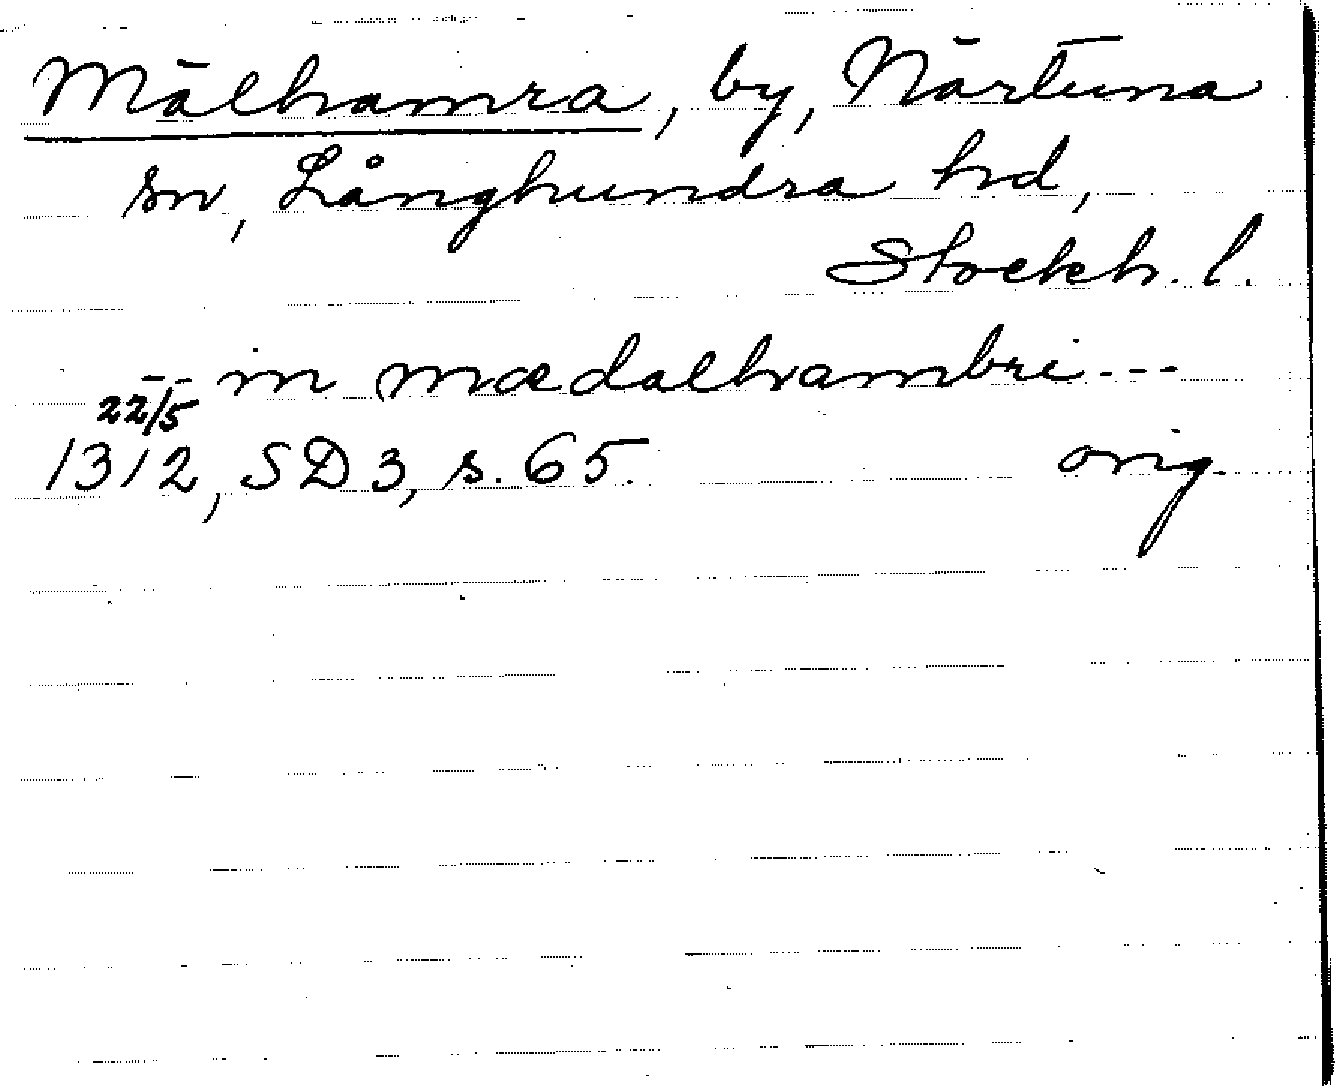 Mälhamra, by, Närtuna
sn, Långhundra hd,
Stockh. l.
in mædalhambri ---
22/5
1312, SD 3, s. 65. orig.